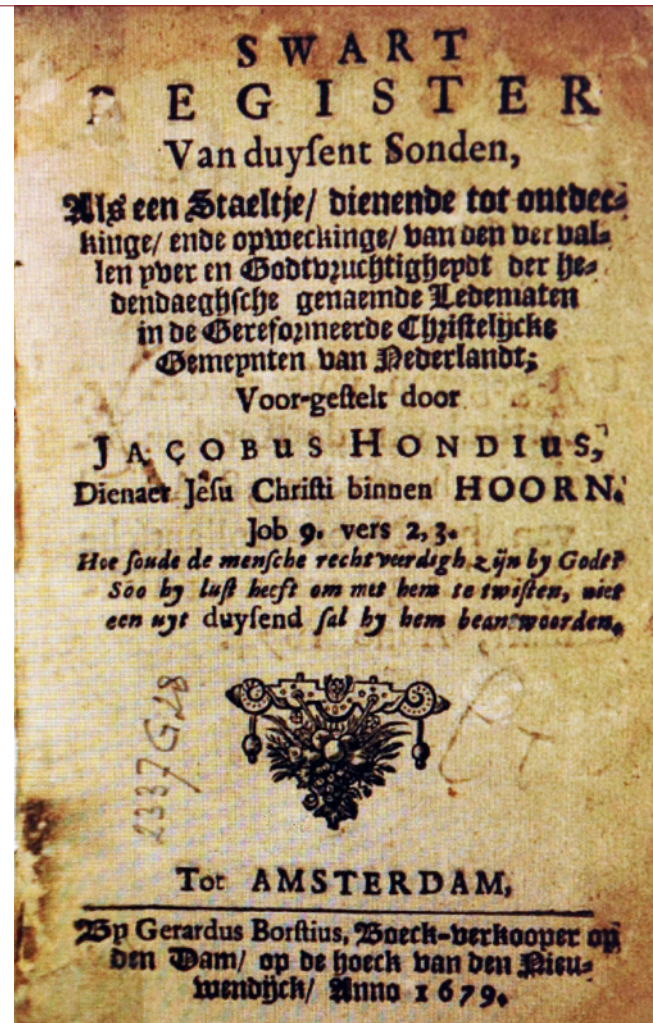 SWART
REGISTER
Van duyſent Sonden,
Als een Staeltje/ dienende tot ontdec-
kinge/ ende opweckinge/ van den verval-
len yver en Godtvruchtigheydt der he-
dendaeghſche genaemde Ledematen
in de Gereformeerde Chriſtelijcke
Gemeynten van Nederlandt;
Voor-geſtelt door
JACOBUS HONDIUS,
Dienaer Jeſu Chriſti binnen HOORN.
Job 9. vers 2, 3.
Hoe ſoude de menſche rechtveerdigh zijn by Godt?
Soo hy luſt heeft om met hem te twiſten, niet
een uyt duyſend ſal hy hem beantwoorden.
2337 G 28
Tot AMSTERDAM,
By Gerardus Borſtius, Boeck-verkooper op
den Dam/ op de hoeck van den Nieu-
wendijck/ Anno 1679.